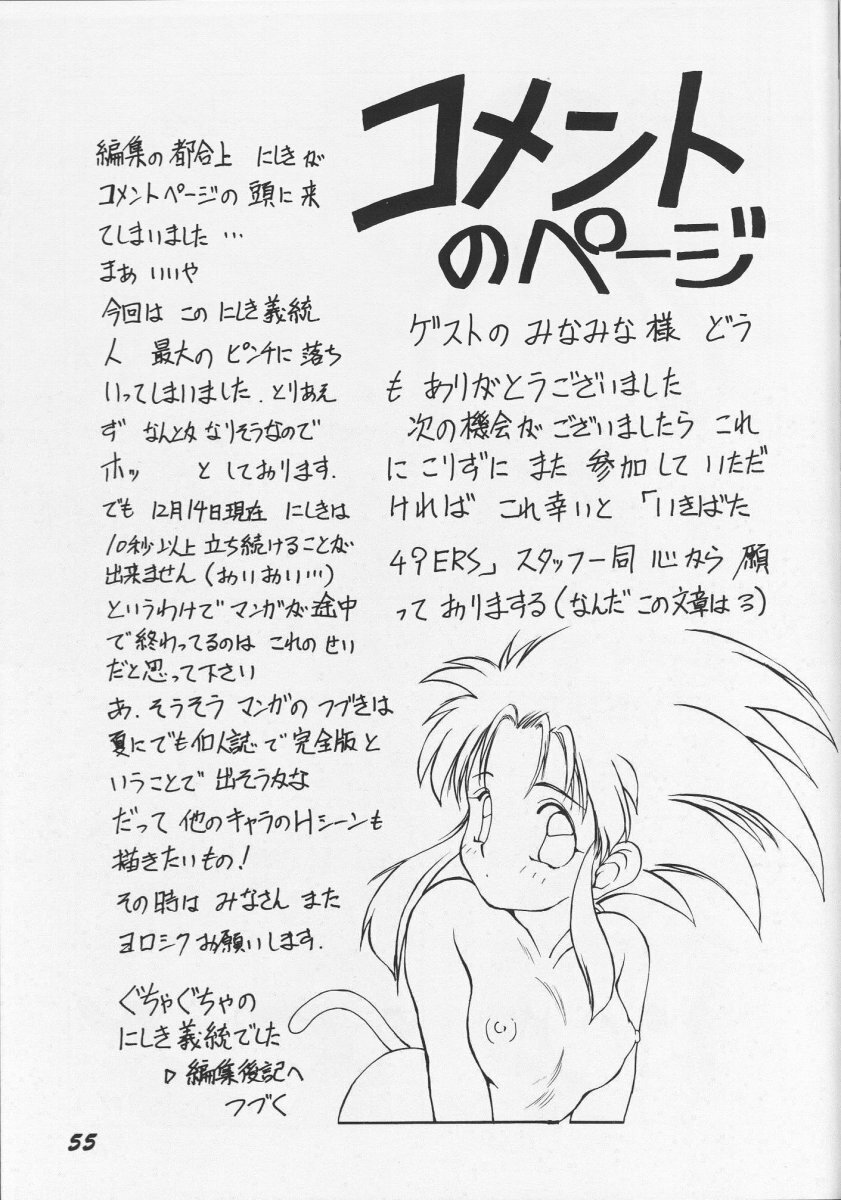 コメント
のページ
ゲストの みなみな様 どう
も ありがとうございました
次の機会が ございましたら これ
に こりずに また 参加して いただ
ければ これ幸いと 「いきばた
49ERS」スタッフ一同 心から 願
って おりまする(なんだ この文章は3)
編集の都合上 にしきが
コメントページの 頭に来
てしまいました …
まぁ いいや
今回は この にしき義統
人 最大の ピンチに 落ち
いってしまいました. とりあえ
ず なんとか なりそうなので
ホッ と しております.
でも 12月14日現在 にしきは
10秒以上 立ち続けることが
出来ません(おいおい…)
というわけで マンガが 途中
で終わってるのは これの せい
だと思って下さい
あ. そうそう マンガの つづきは
夏にでも 同人誌で 完全版と
いうことで 出そうかな
だって 他のキャラのHシーンも
描きたいもの!
その時は みなさん また
ヨロシク お願いします.
ぐちゃぐちゃの
にしき義統でした
▷ 編集後記へ
つづく
55